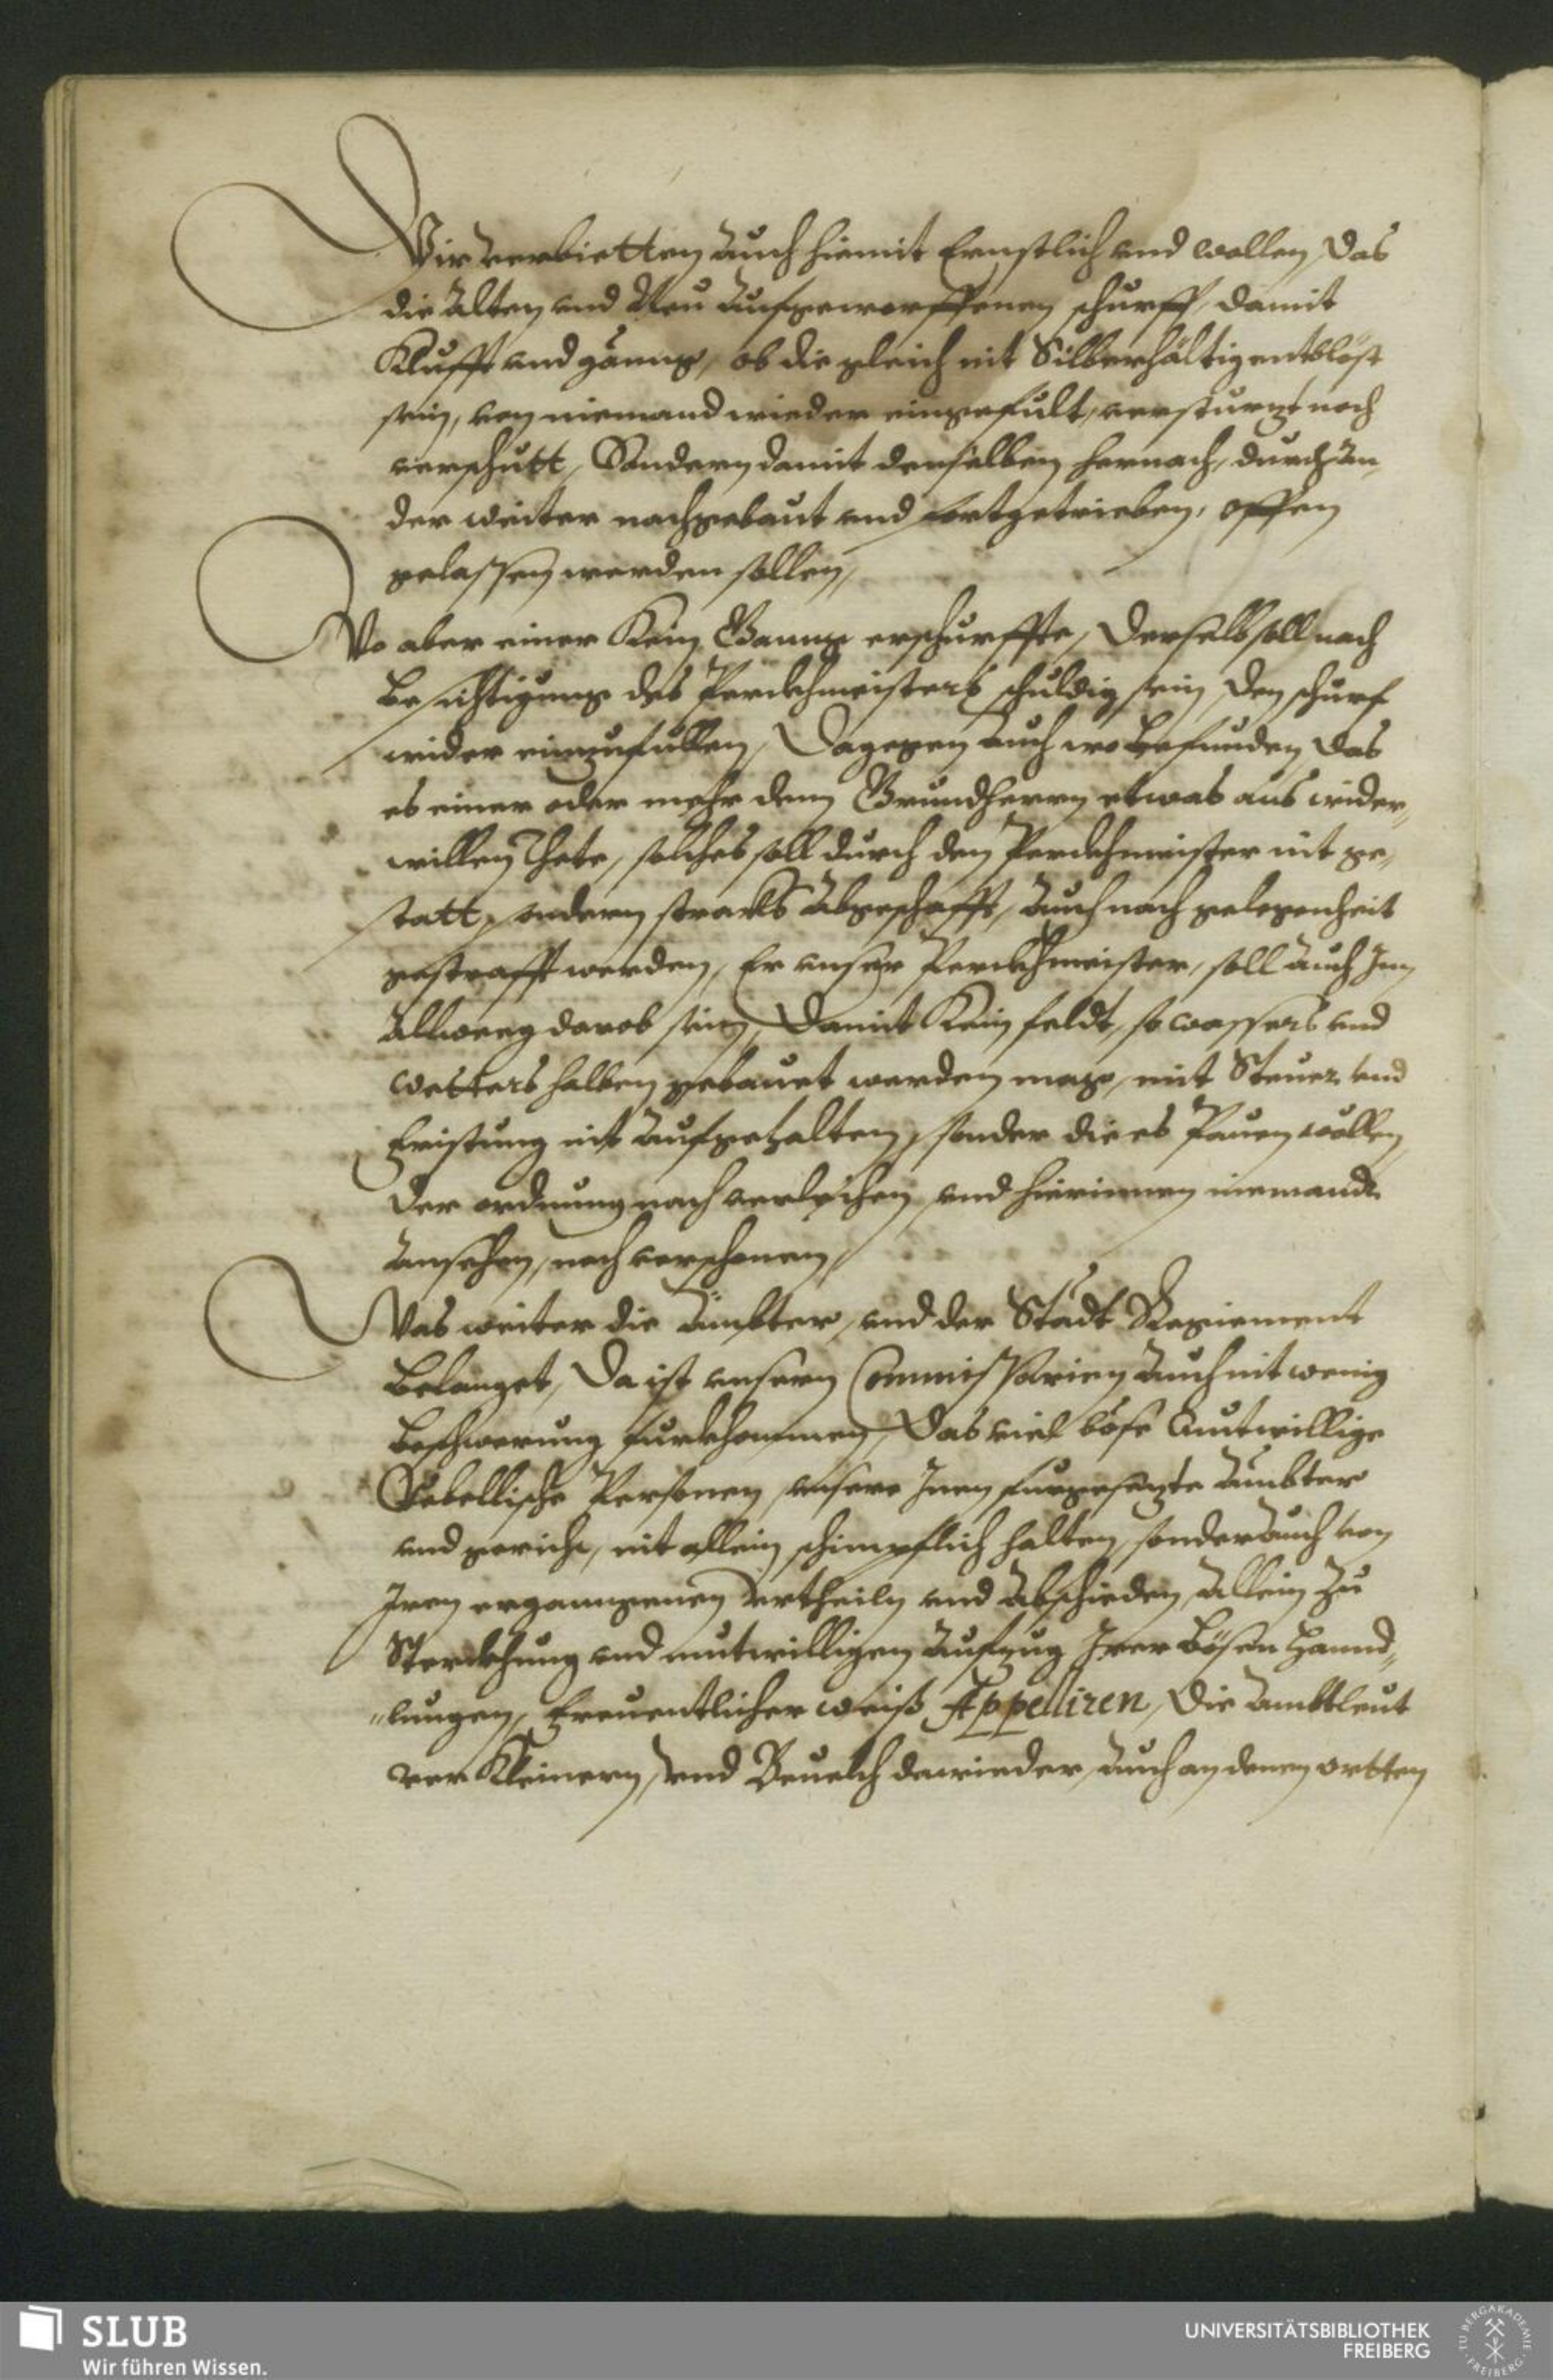 Wir verbietten auch hiemit Ernstlich und wollen, das
die alten und Neu aufgeworffenen schurff, damit
Klufft und gänng, ob die gleich nit Silberhältig entblöst
sein, von niemand wieder eingefult, versturzt noch
verschutt, Sondern damit denselben hernach, durch an
der weiter nachgebaut und fortgetrieben, offen
gelassen werden sollen,
Wo aber einer Kein Ganng erschurffte, Derselb soll nach
besichtigung des Perckhmeisters schuldig sein, den schurf
wider einzufullen, Dagegen auch wo befunden, das
es einer oder mehr dem Grundherrn etwas aus wider„
willen Thete, solches soll durch den Perckhmeister nit ge„
statt, sondern stracks abgeschafft, auch nach gelegenheit
gestrafft werden, Er unser Perckhmeister, soll auch Inn
allweeg darob sein, Damit Kein feldt, so wassers und
wetters halben gebauet werden mag, mit Steuer und
Fristung nit aufgehalten, sonder die es Pauen wollen,
der ordnung nach verleichen, und hierinnen niemandt
ansehen, noch verschonen,
Was weiter die Ämbter, und der Stadt Regiement
belanget, Da ist unsern Commissarien auch nit wenig
beschwerung furkhommen, Das viel böse mutwillige
Rebellische Personen, unsere Inen furgesezte Ämbter
und gericht, nit allein schimpflich halten, sonder auch von
Iren ergangenen Urtheiln und Abschieden, allein zu
Sterckhung und mutwilligen aufzug Irer bösen Hannd„
„lungen, freuentlicher weiß Appelliren, Die Ambtleut
ver Kleinern, und Beuelch darwieder, auch an denen ortten
SLUB
Wir führen Wissen.
UNIVERSITÄTSBIBLIOTHEK
FREIBERG
TU BERGAKADEMIE
FREIBERG